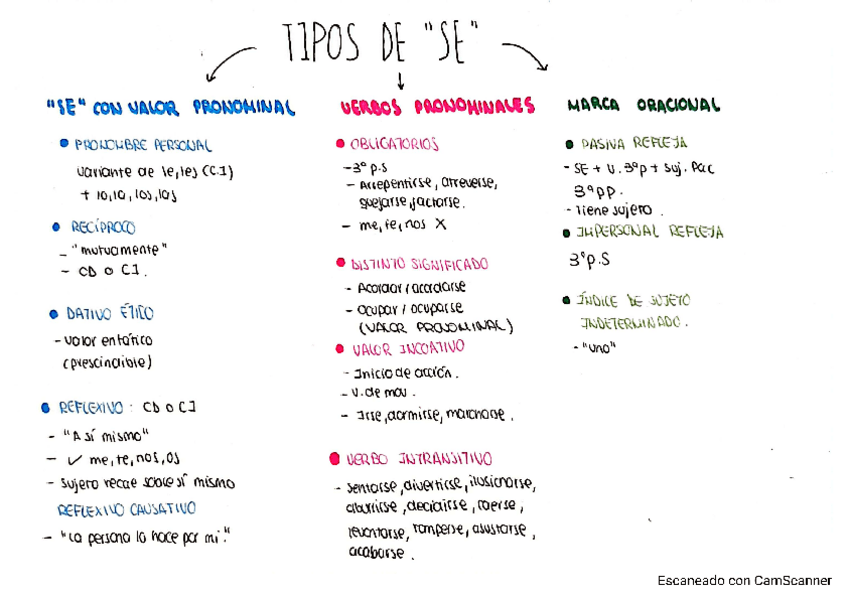 TIPOS DE "SE"
"SE" CON VALOR PRONOMINAL
PRONOMBRE PERSONAL
variante de le, les (CI)
+ lo, la, los, las
RECÍPROCO
- "mutuamente"
- CD o CI.
DATIVO ÉTICO
- valor enfático
(prescindible)
REFLEXIVO: CD o CI
- "A sí mismo"
- ✓ me, te, nos, os
- sujeto recae sobre sí mismo
REFLEXIVO CAUSATIVO
- "La persona lo hace por mí."
VERBOS PRONOMINALES
OBLIGATORIOS
- 3º p.s
- Arrepentirse, atreverse,
quejarse, jactarse.
- me, te, nos X
DISTINTO SIGNIFICADO
- Acordar / acordarse
- Ocupar / ocuparse
(VALOR PRONOMINAL)
VALOR INCOATIVO
- Inicio de acción.
- V. de mov.
- Irse, dormirse, marcharse.
VERBO INTRANSITIVO
- sentarse, divertirse, ilusionarse,
aburrirse, decidirse, caerse,
levantarse, romperse, asustarse,
acabarse.
MARCA ORACIONAL
PASIVA REFLEJA
- SE + V. 3ºp + Suj. Pac
3º pp.
- Tiene sujeto.
IMPERSONAL REFLEJA
3º p.S
ÍNDICE DE SUJETO
INDETERMINADO.
- "uno"
Escaneado con CamScanner